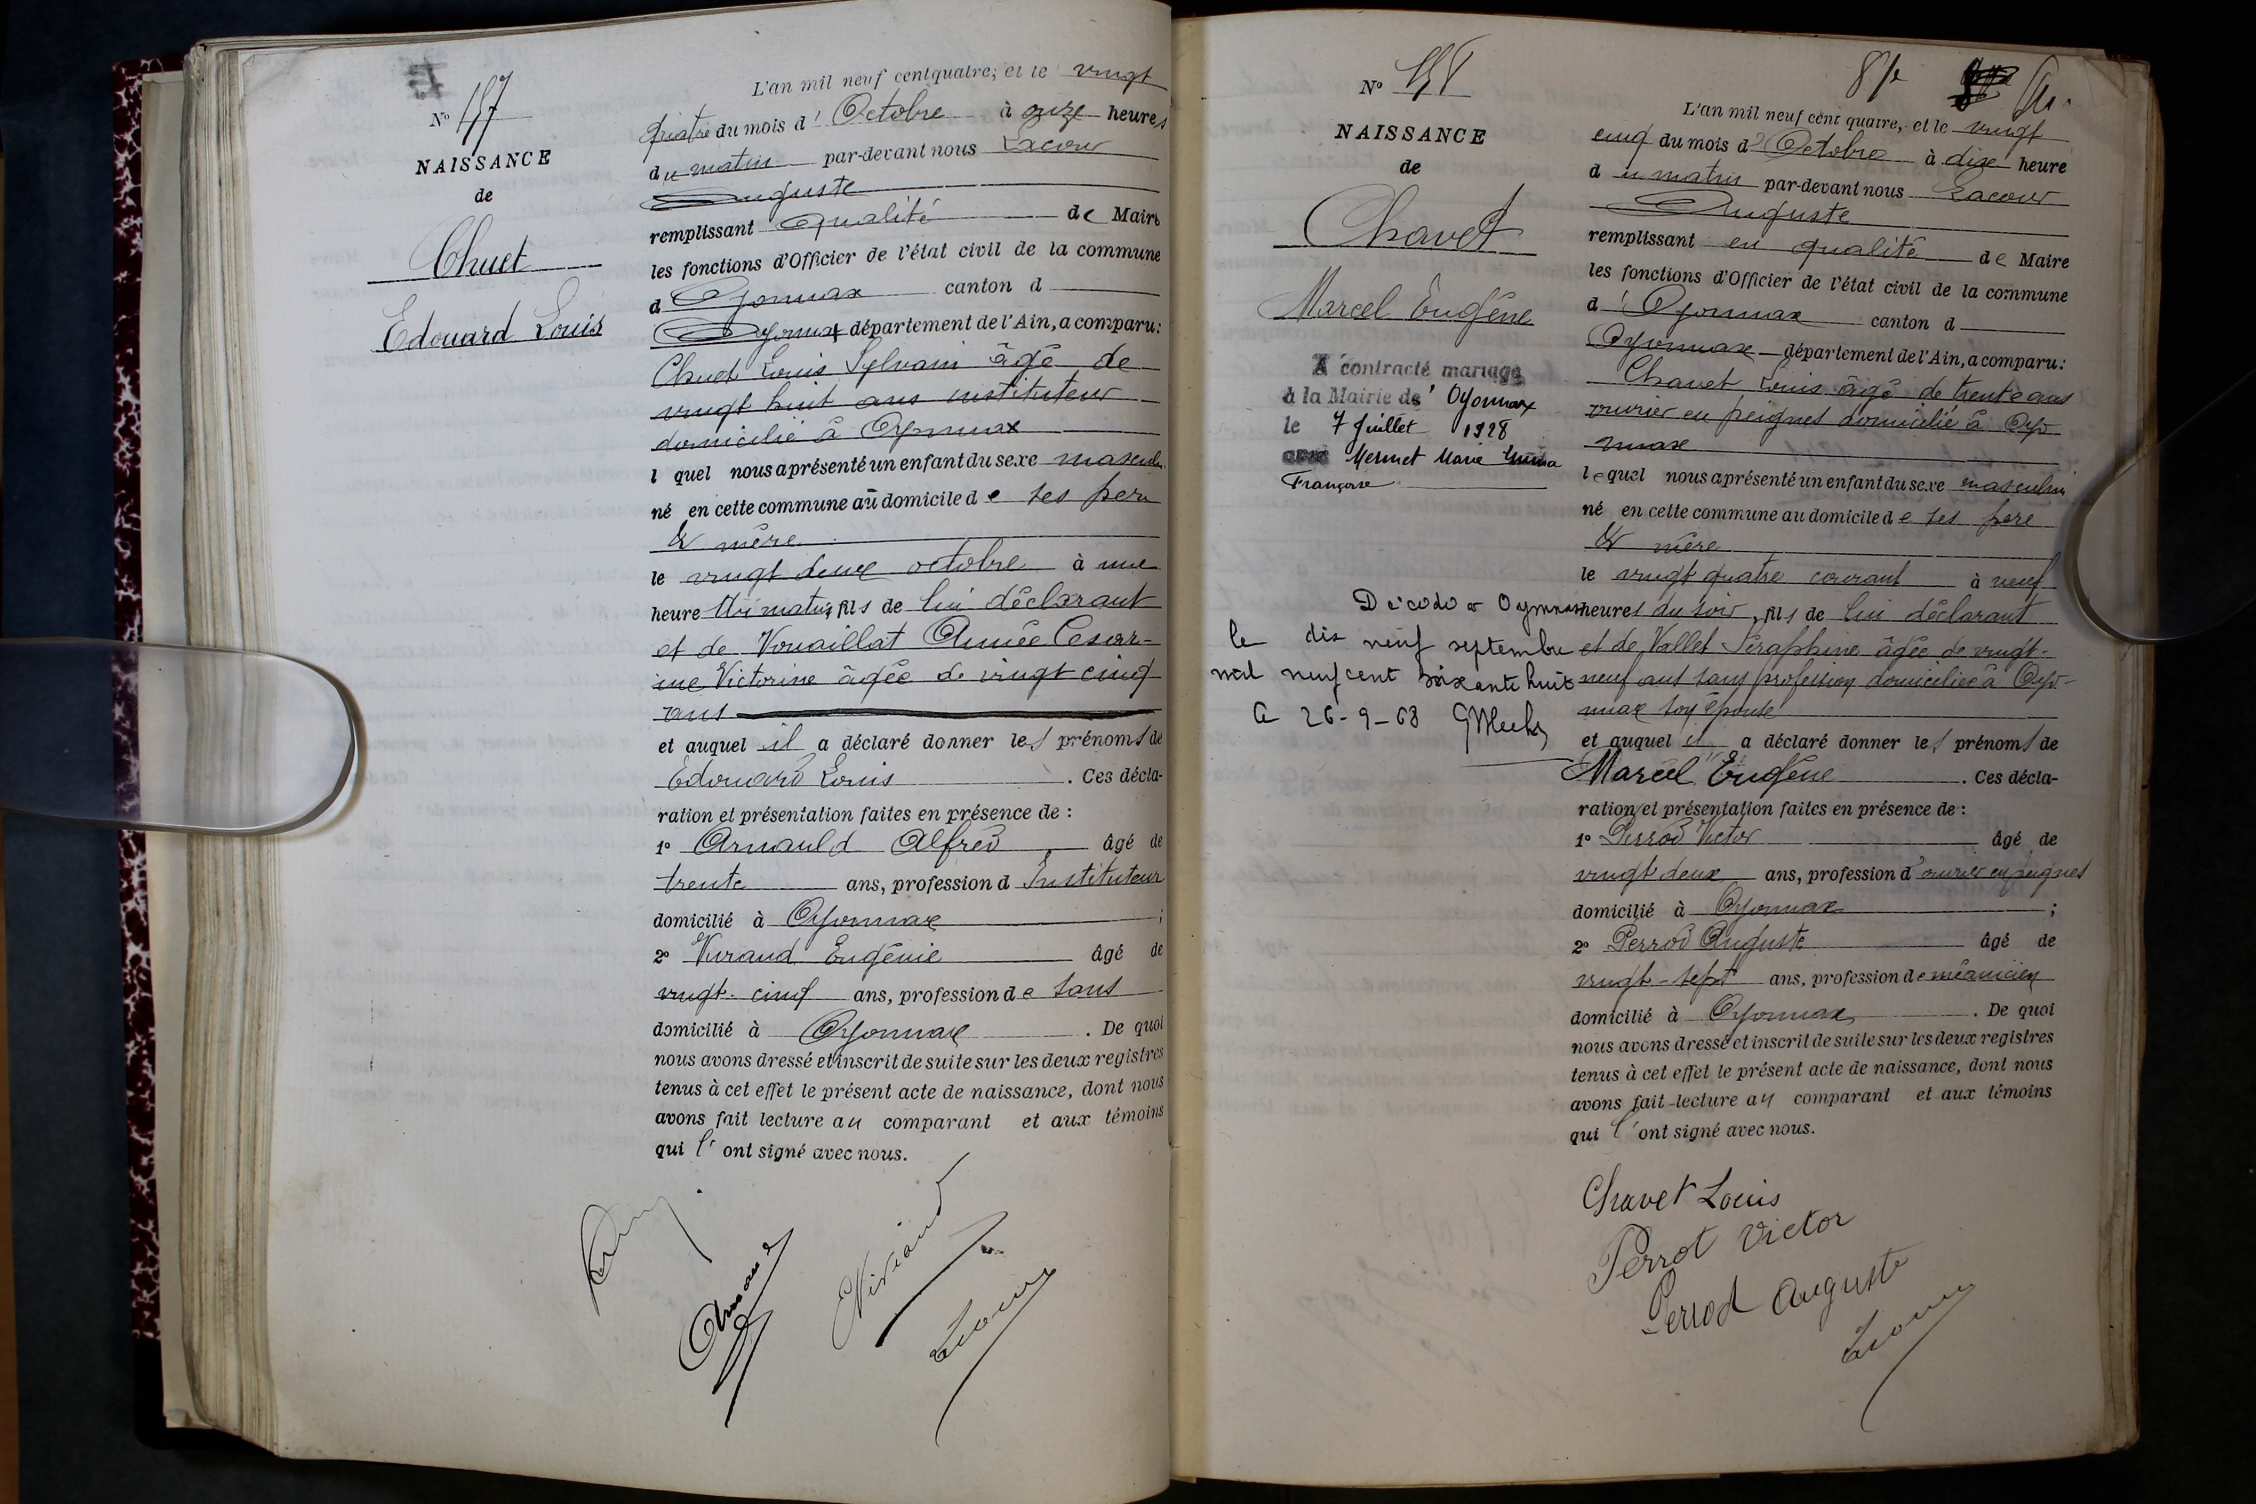 N° 157
NAISSANCE
de
Chuet
Edouard Louis
L'an mil neuf cent quatre, et le vingt
quatre du mois d'Octobre à onze heures
du matin par-devant nous Lacour
Auguste
remplissant qualité de Maire
les fonctions d'Officier de l'état civil de la commune
d Oyonnax canton d
Oyonnax département de l'Ain, a comparu:
Chuet Louis Sylvain âgé de
vingt huit ans instituteur
domicilié à Oyonnax
l quel nous a présenté un enfant du sexe masculin
né en cette commune au domicile de ses père
& mère
le vingt deux octobre à une
heure du matin, fils de lui déclarant
et de Vouaillat Aimée Cesar-
ine Victorine âgée de vingt cinq
ans
et auquel il a déclaré donner les prénoms de
Edouard Louis . Ces décla-
ration et présentation faites en présence de :
1° Arnauld Alfred âgé de
trente ans, profession d Instituteur
domicilié à Oyonnax ;
2° Eugénie âgé de
vingt-cinq ans, profession de sans
domicilié à Oyonnax . De quoi
nous avons dressé et inscrit de suite sur les deux registres
tenus à cet effet le présent acte de naissance, dont nous
avons fait lecture au comparant et aux témoins
qui l'ont signé avec nous.
N° 158
NAISSANCE
de
Chavet
Marcel Eugène
A contracté mariage
à la Mairie de' Oyonnax
le 7 Juillet 1928
avec Mermet Marie
Françoise
Décédé à Oyonnax
le dix neuf septembre
mil neuf cent soixante huit
26-9-68
L'an mil neuf cent quatre, et le vingt
cinq du mois d'Octobre à dix heure
du matin par-devant nous Lacour
Auguste
remplissant en qualité de Maire
les fonctions d'Officier de l'état civil de la commune
d'Oyonnax canton d
Oyonnax département de l'Ain, a comparu:
Chavet Louis âgé de trente ans
ouvrier en peignes domicilié à Oyo
nnax
lequel nous a présenté un enfant du sexe masculin
né en cette commune au domicile de ses père
& mère
le vingt quatre courant à neuf
heures du soir, fils de lui déclarant
et de Vallet Séraphine âgée de vingt-
neuf ans sans profession domiciliée à Oyo-
nnax son épouse
et auquel il a déclaré donner les prénoms de
Marcel Eugène . Ces décla-
ration et présentation faites en présence de :
1° Perrod Victor âgé de
vingt deux ans, profession d'ouvrier en peignes
domicilié à Oyonnax ;
2° Perrod Auguste âgé de
vingt-sept ans, profession de mécanicien
domicilié à Oyonnax . De quoi
nous avons dressé et inscrit de suite sur les deux registres
tenus à cet effet le présent acte de naissance, dont nous
avons fait lecture au comparant et aux témoins
qui l'ont signé avec nous.
Chavet Louis
Perrot Victor
Perrod Auguste
Lacour